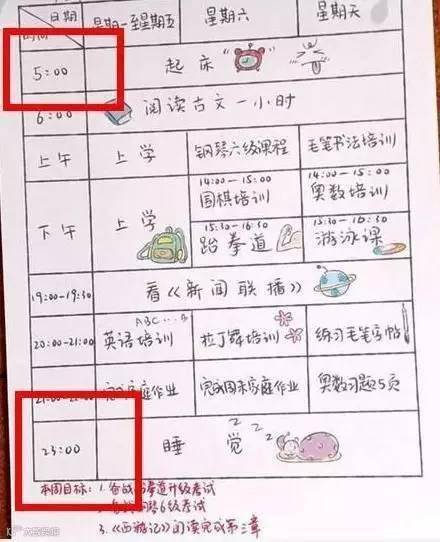 日期
时间
星期一至星期五 星期六 星期天
5:00 起床
6:00 阅读古文一小时
上午 上学 钢琴六级课程 毛笔书法培训
14:00-15:00 14:00-15:00
围棋培训 奥数培训
下午 上学
15:30-16:30 15:30-16:30
跆拳道 游泳课
19:00-19:30 看《新闻联播》
ABC...B
20:00-21:00 英语培训 拉丁舞培训 练习毛笔字帖
21:00-22:00 完成家庭作业 完成周末家庭作业 奥数习题5页
23:00 睡觉 zzz
本周目标: 1. 备战跆拳道升级考试
2. 备战钢琴6级考试
3.《西游记》阅读完成第三章